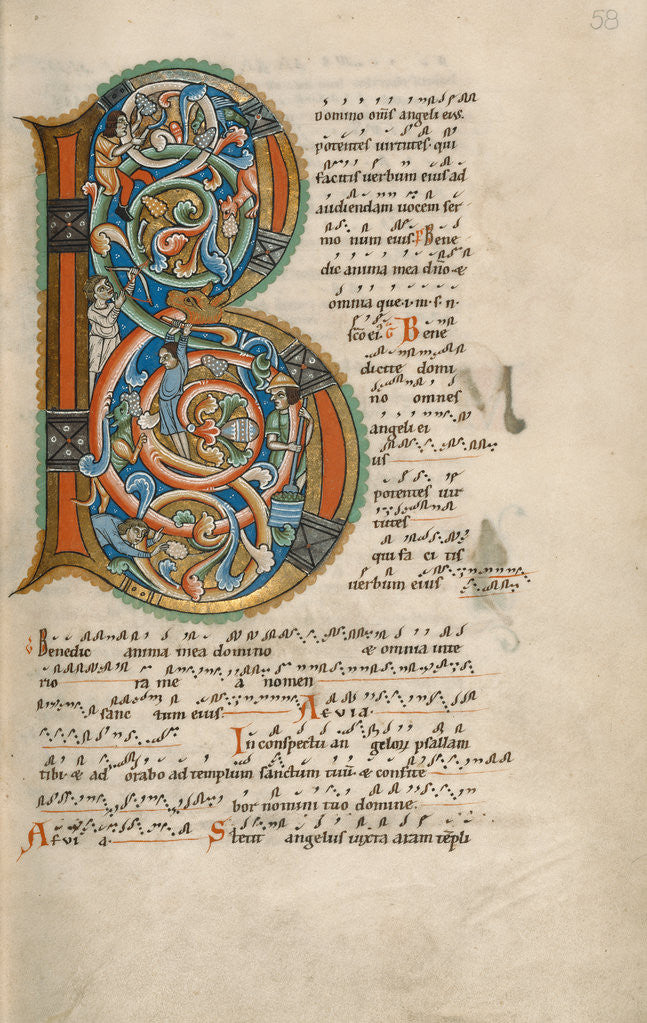 58
B
Domino om̄s angeli eius.
potentes uirtutes. qui
facitis uerbum eius ad
audiendam uocem ser
mo num eius. P Bene
dic anima mea dn̄o &
omnia que.i.m.s.n
sc̄o ei. G Bene
dicite domi
no omnes
angeli ei
us
potentes uir
tutes
qui fa ci tis
uerbum eius
Benedic anima mea domino & omnia inte
rio ra me a nomen
sanc tum eius. Aeuia.
In conspectu an gelorum psallam
tibi & ad orabo ad templum sanctum tuū & confite
bor nomini tuo domine.
Aeui a. Stetit angelus iuxta aram tēpli